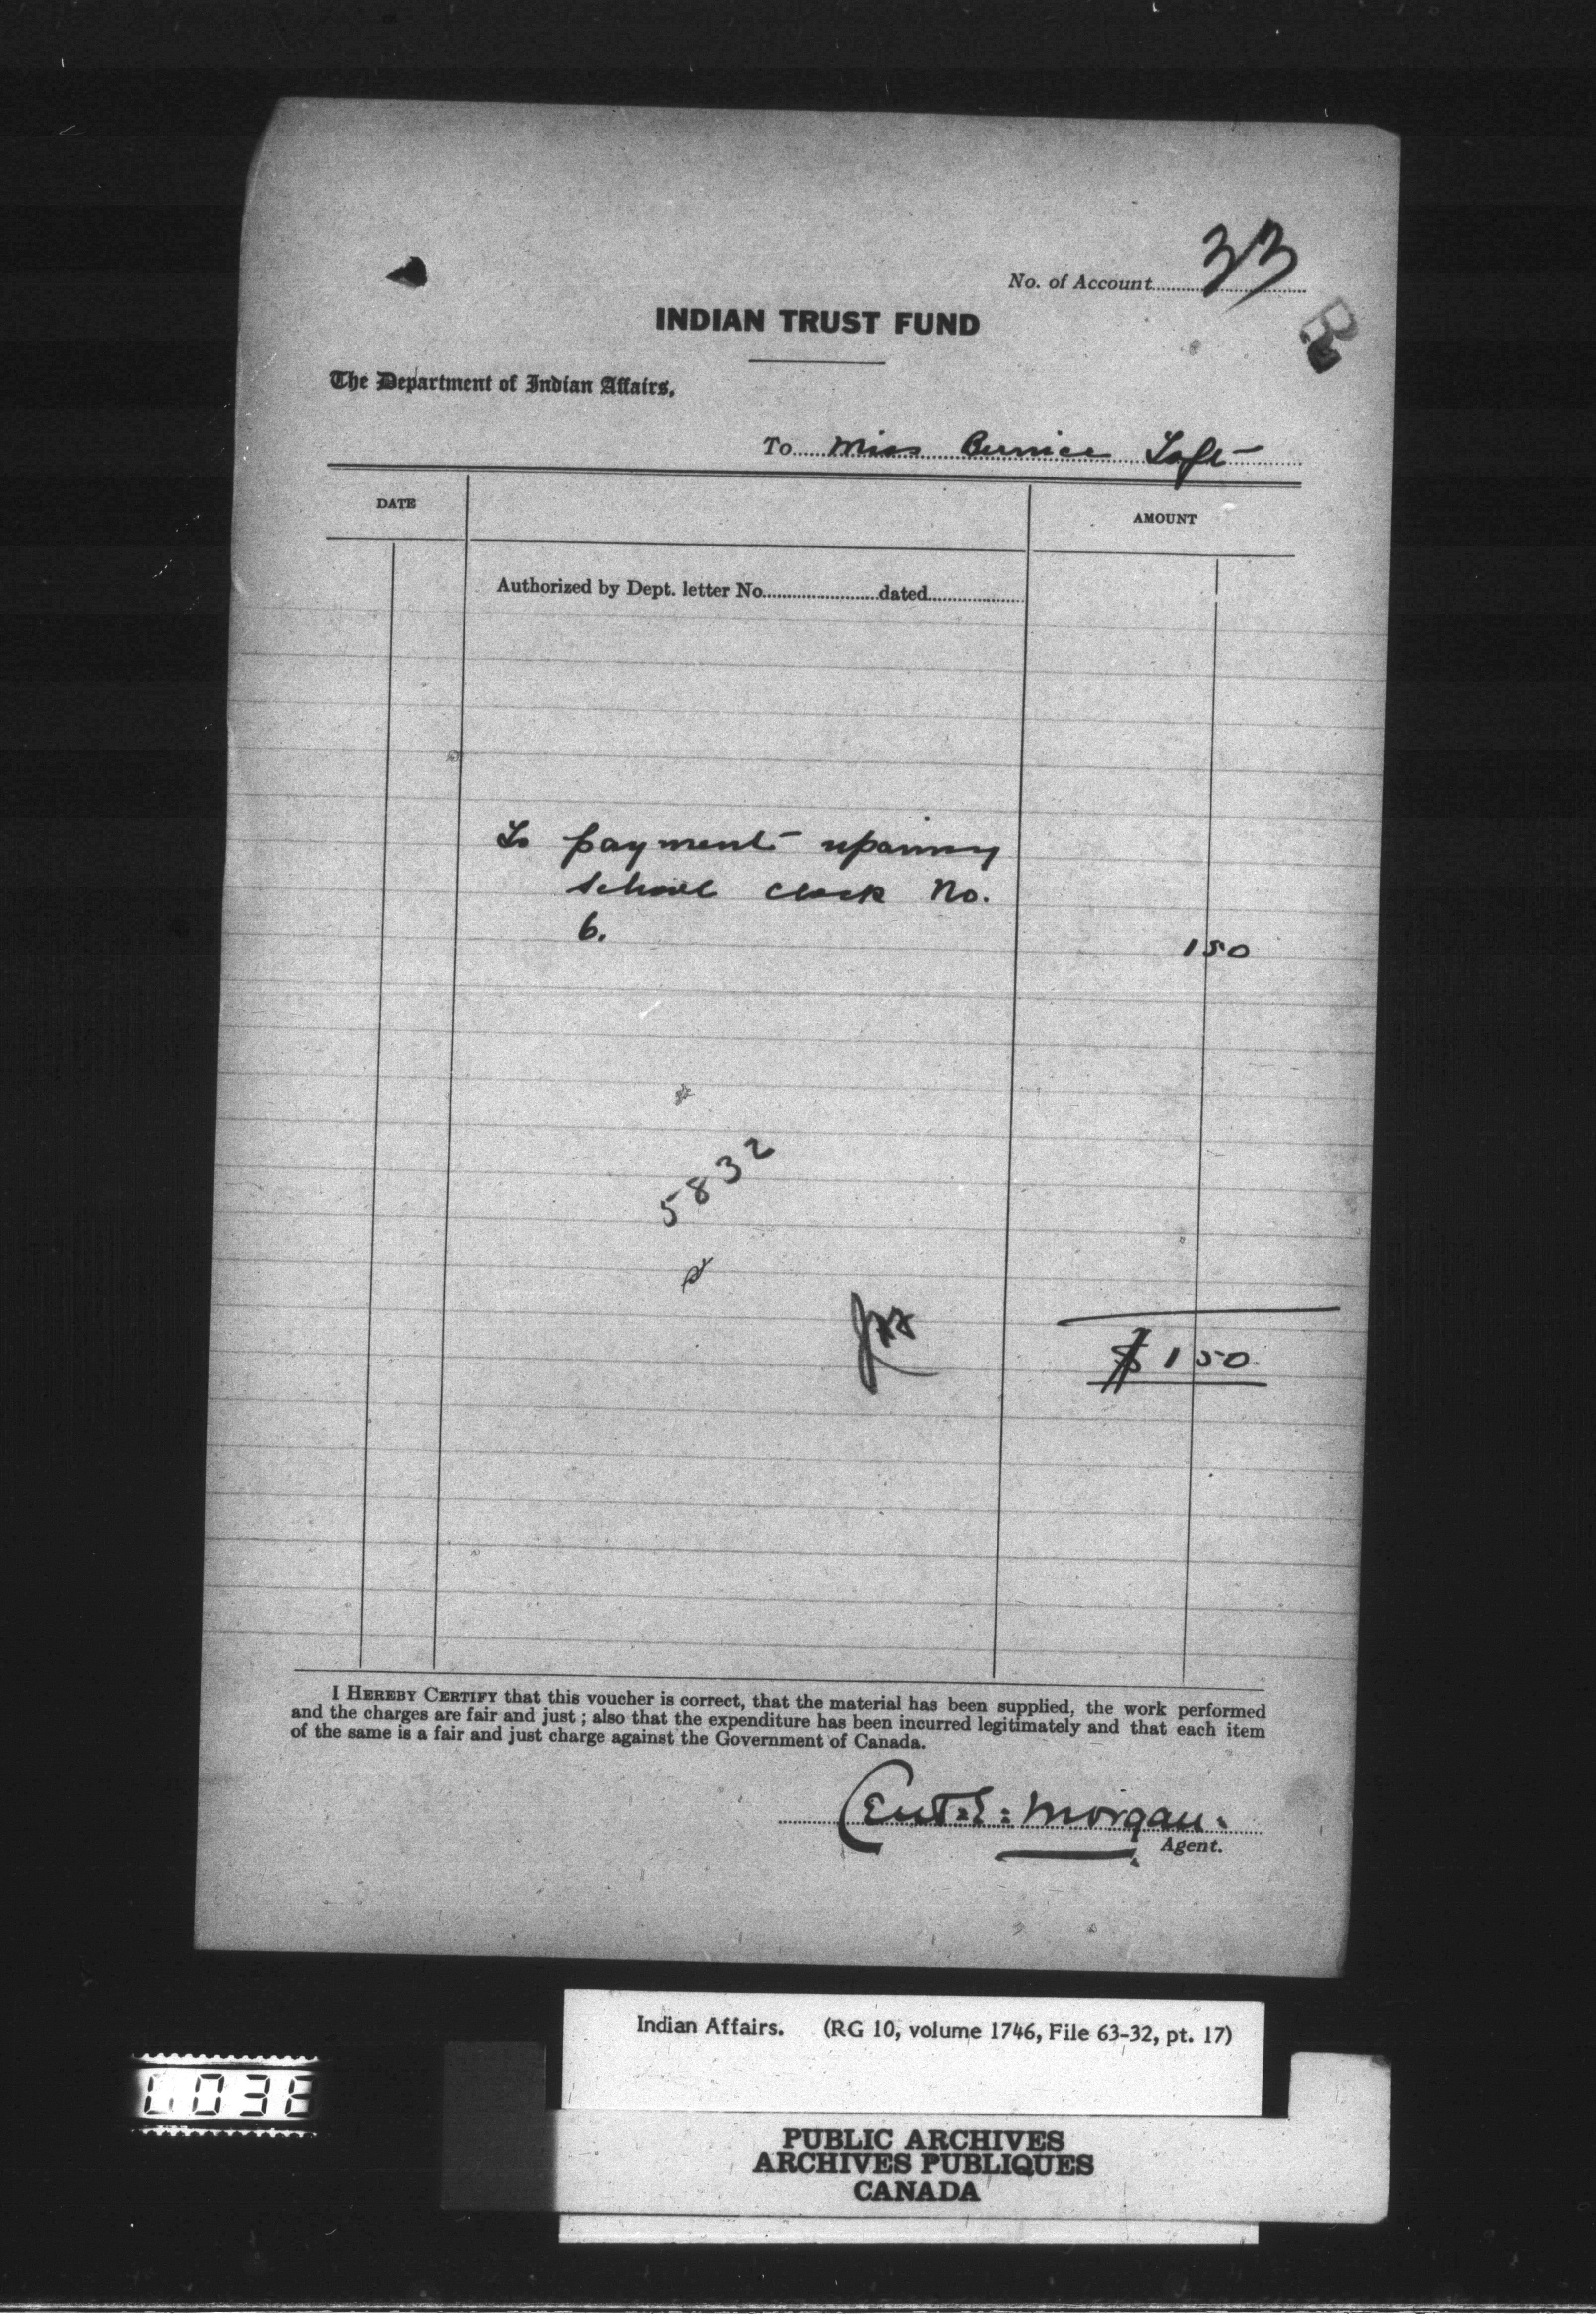 No. of Account 33
INDIAN TRUST FUND
The Department of Indian Affairs,
To Miss Bernice Loft
DATE
AMOUNT
Authorized by Dept. letter No. dated
To payment repairing
school clock No.
6. 1 50
5832
$ 1 50
I HEREBY CERTIFY that this voucher is correct, that the material has been supplied, the work performed
and the charges are fair and just ; also that the expenditure has been incurred legitimately and that each item
of the same is a fair and just charge against the Government of Canada.
Morgan.
Agent.
Indian Affairs. (RG 10, volume 1746, File 63-32, pt. 17)
PUBLIC ARCHIVES
ARCHIVES PUBLIQUES
CANADA